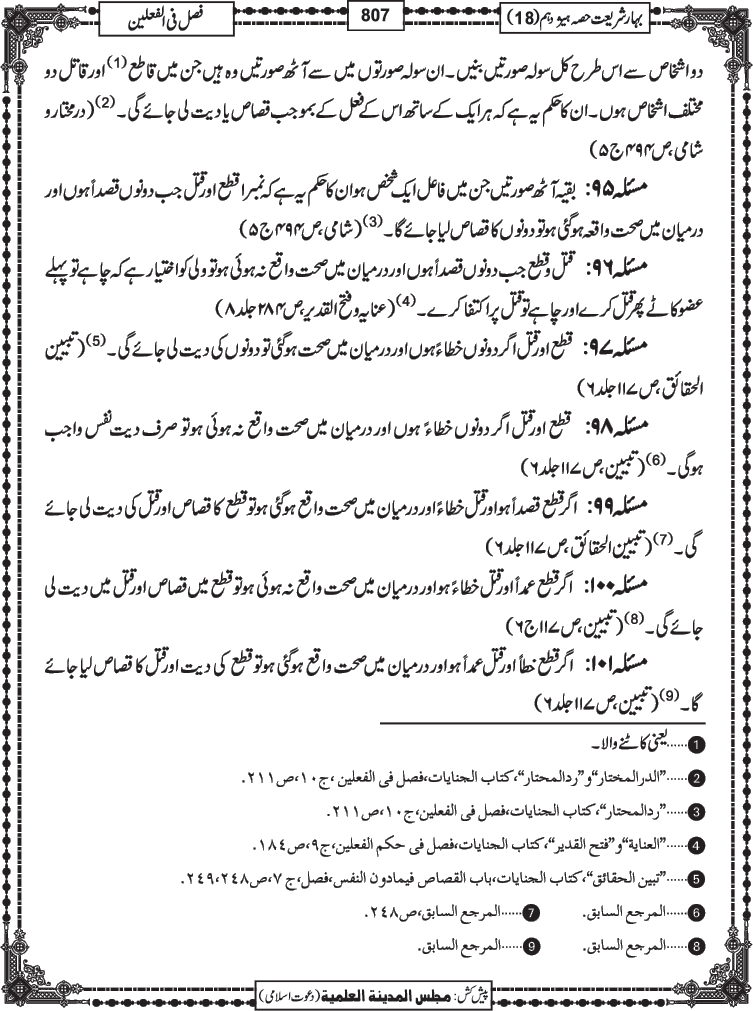 بہار شریعت حصہ ہیژدہم (18)
807
فصل فی الفعلین
دو اشخاص سے اس طرح کل سولہ صورتیں بنیں۔ ان سولہ صورتوں میں سے آٹھ صورتیں وہ ہیں جن میں قاطع (1) اور قاتل دو
مختلف اشخاص ہوں۔ ان کا حکم یہ ہے کہ ہر ایک کے ساتھ اس کے فعل کے بموجب قصاص یا دیت لی جائے گی۔ (2) (درمختار و
شامی، ص ۴۹۴ ج ۵)
مسئلہ ۹۵: بقیہ آٹھ صورتیں جن میں فاعل ایک شخص ہو ان کا حکم یہ ہے کہ نمبر ا قطع اور قتل جب دونوں قصداً ہوں اور
درمیان میں صحت واقعہ ہوگئی ہو تو دونوں کا قصاص لیا جائے گا۔ (3) (شامی، ص ۴۹۴ ج ۵)
مسئلہ ۹۶: قتل و قطع جب دونوں قصداً ہوں اور درمیان میں صحت واقع نہ ہوئی ہو تو ولی کو اختیار ہے کہ چاہے تو پہلے
عضو کاٹے پھر قتل کرے اور چاہے تو قتل پر اکتفا کرے۔ (4) (عنایہ و فتح القدیر، ص ۲۸۴ جلد ۸)
مسئلہ ۹۷: قطع اور قتل اگر دونوں خطاءً ہوں اور درمیان میں صحت ہوگئی تو دونوں کی دیت لی جائے گی۔ (5) (تبیین
الحقائق، ص ۱۱۷ جلد ۶)
مسئلہ ۹۸: قطع اور قتل اگر دونوں خطاءً ہوں اور درمیان میں صحت واقع نہ ہوئی ہو تو صرف دیت نفس واجب
ہوگی۔ (6) (تبیین، ص ۱۱۷ جلد ۶)
مسئلہ ۹۹: اگر قطع قصداً ہو اور قتل خطاءً اور درمیان میں صحت واقع ہوگئی ہو تو قطع کا قصاص اور قتل کی دیت لی جائے
گی۔ (7) (تبیین الحقائق، ص ۱۱۷ جلد ۶)
مسئلہ ۱۰۰: اگر قطع عمداً اور قتل خطاءً ہو اور درمیان میں صحت واقع نہ ہوئی ہو تو قطع میں قصاص اور قتل میں دیت لی
جائے گی۔ (8) (تبیین، ص ۱۱۷ ج ۶)
مسئلہ ۱۰۱: اگر قطع خطأً اور قتل عمداً ہو اور درمیان میں صحت واقع ہوگئی ہو تو قطع کی دیت اور قتل کا قصاص لیا جائے
گا۔ (9) (تبیین، ص ۱۱۷ جلد ۶)
1 ......یعنی کاٹنے والا۔
2 ......"الدرالمختار" و "ردالمحتار"، کتاب الجنایات، فصل فی الفعلین، ج ۱۰، ص ۲۱۱.
3 ......"ردالمحتار"، کتاب الجنایات، فصل فی الفعلین، ج ۱۰، ص ۲۱۱.
4 ......"العنایة" و "فتح القدیر"، کتاب الجنایات، فصل فی حکم الفعلین، ج ۹، ص ۱۸۴.
5 ......"تبین الحقائق"، کتاب الجنایات، باب القصاص فیمادون النفس، فصل، ج ۷، ص ۲۴۸، ۲۴۹.
6 ......المرجع السابق. 7 ......المرجع السابق، ص ۲۴۸.
8 ......المرجع السابق. 9 ......المرجع السابق.
پیش کش: مجلس المدینة العلمیة (دعوت اسلامی)